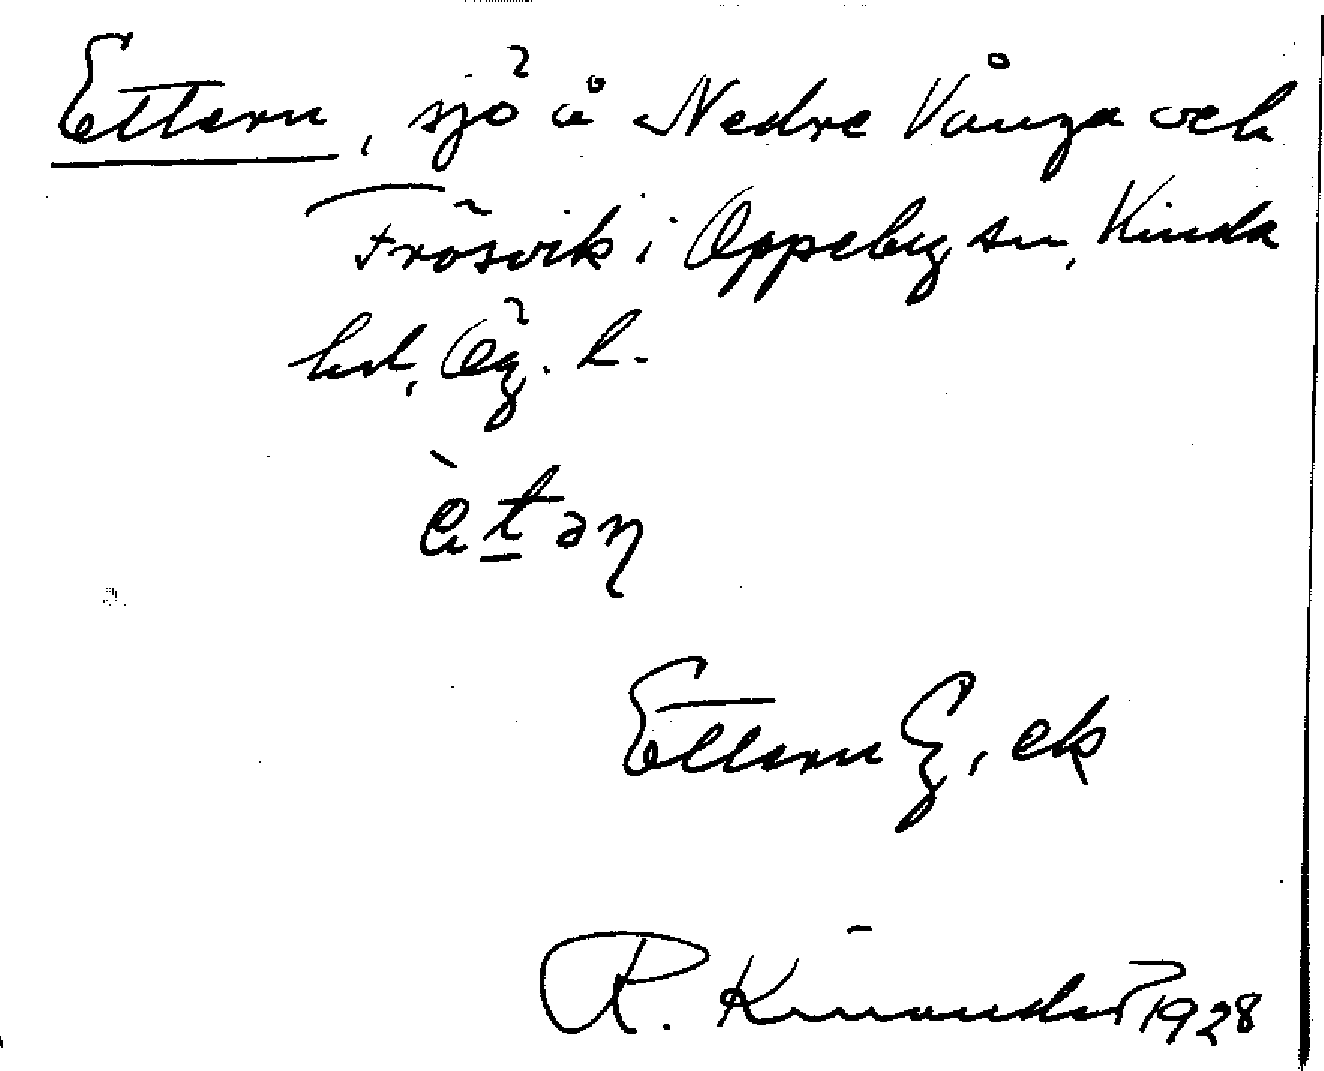 Ettern, sjö å Nedre Vånga och
Frösvik i Oppeby sn, Kinda
hd, Ög. l.
èt̲ən
Ettern G, ek
R. Kinander 1928